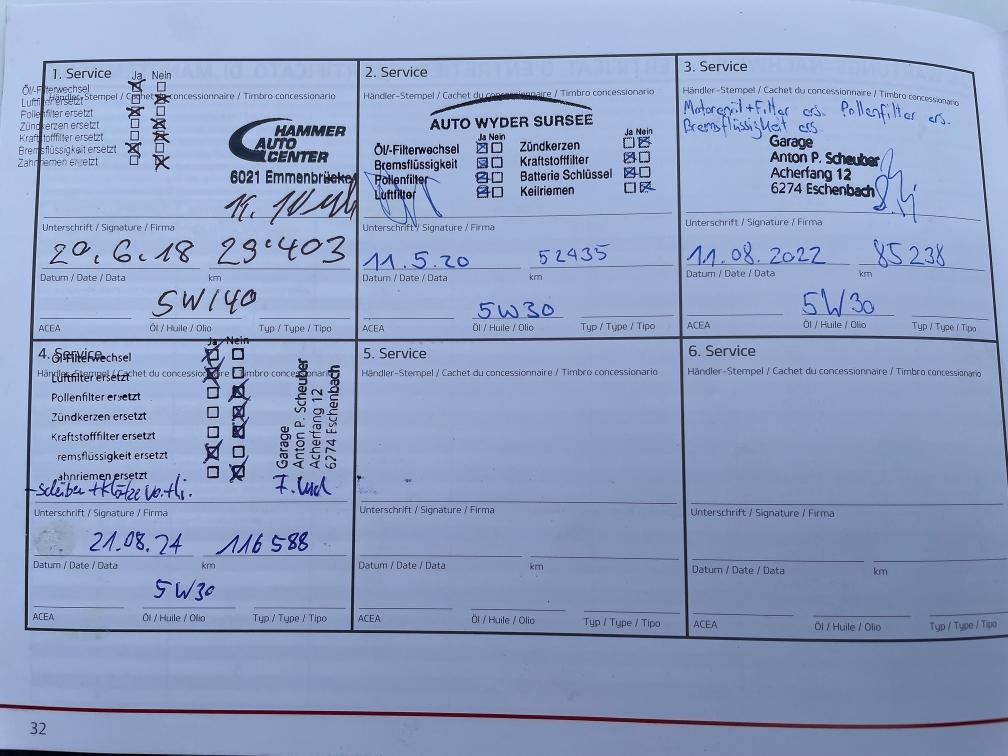 1. Service
Ja Nein
Öl-/Filterwechsel
Händler-Stempel / Cachet du concessionnaire / Timbro concessionario
Luftfilter ersetzt
Pollenfilter ersetzt
Zündkerzen ersetzt
Kraftstofffilter ersetzt
Bremsflüssigkeit ersetzt
Zahnriemen ersetzt
HAMMER
AUTO
CENTER
6021 Emmenbrücke
Unterschrift / Signature / Firma
20.6.18 29'403
Datum / Date / Data km
5W/40
ACEA Öl / Huile / Olio Typ / Type / Tipo
2. Service
Händler-Stempel / Cachet du concessionnaire / Timbro concessionario
AUTO WYDER SURSEE
Ja Nein Ja Nein
Öl/-Filterwechsel Zündkerzen
Bremsflüssigkeit Kraftstofffilter
Pollenfilter Batterie Schlüssel
Luftfilter Keilriemen
Unterschrift / Signature / Firma
11.5.20 52435
Datum / Date / Data km
5W30
ACEA Öl / Huile / Olio Typ / Type / Tipo
3. Service
Händler-Stempel / Cachet du concessionnaire / Timbro concessionario
Motorenöl + Filter ers. Pollenfilter ers.
Bremsflüssigkeit ers.
Garage
Anton P. Scheuber
Acherfang 12
6274 Eschenbach
Unterschrift / Signature / Firma
11.08.2022 85238
Datum / Date / Data km
5W30
ACEA Öl / Huile / Olio Typ / Type / Tipo
4. Service
Ja Nein
Öl-Filterwechsel
Händler-Stempel / Cachet du concessionnaire / Timbro concessionario
Luftfilter ersetzt
Pollenfilter ersetzt
Zündkerzen ersetzt
Kraftstofffilter ersetzt
remsflüssigkeit ersetzt
ahnriemen ersetzt
Garage
Anton P. Scheuber
Acherfang 12
6274 Eschenbach
Unterschrift / Signature / Firma
21.08.24 116 588
Datum / Date / Data km
5W30
ACEA Öl / Huile / Olio Typ / Type / Tipo
5. Service
Händler-Stempel / Cachet du concessionnaire / Timbro concessionario
Unterschrift / Signature / Firma
Datum / Date / Data km
ACEA Öl / Huile / Olio Typ / Type / Tipo
6. Service
Händler-Stempel / Cachet du concessionnaire / Timbro concessionario
Unterschrift / Signature / Firma
Datum / Date / Data km
ACEA Öl / Huile / Olio Typ / Type / Tipo
32